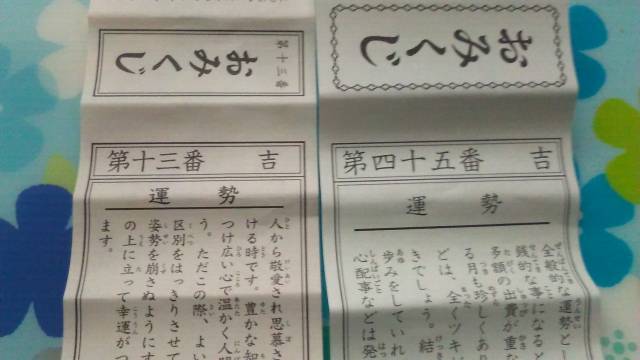 第十三番
おみくじ
第十三番 吉
運勢
人から敬愛され思慕さ
ける時です。豊かな知
つけ広い心で温かく人
う。ただこの際、よい
区別をはっきりさせて
姿勢を崩さぬようにす
の上に立って幸運がつ
ます。
おみくじ
第四十五番 吉
運勢
全般的な運勢と
銭的な事になる
多額の出費が重
る月も珍しくあ
どは、全くツキ
きでしょう。結
歩みをしていれ
心配事などは発